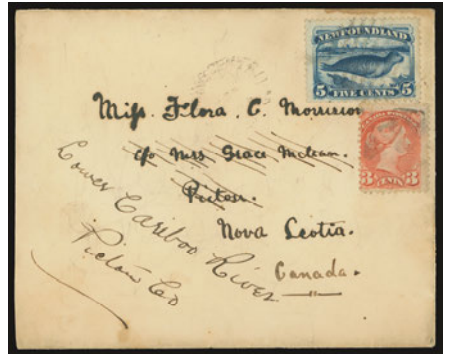 NEWFOUNDLAND
5 5
FIVE CENTS
Miss. Flora. C. Morrison
c/o Mrs Grace McLean.
Pictou.
Nova Scotia.
Canada.
Lower Cariboo River
Pictou Co
3 CENTS 3